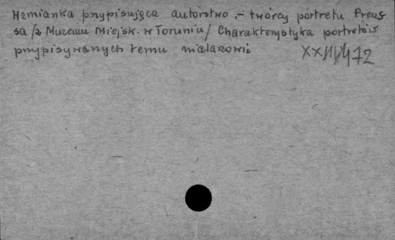 Wzmianka przypisująca autorstwo – twórcy portretu Preus
sa /z Muzeum Miejsk. w Toruniu/ Charakterystyka portretów
przypisywanych temu malarowi XXIII/472